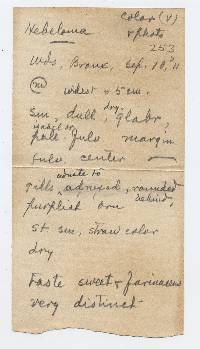 color (v)
Hebeloma + photo
253
Wds, Bronx, Sep. 10, '11
(m) widest = 5 cm.
dry
Sm, dull, glabr,
isabel or
pale fulv margin
fulv, center
adnate to
gills, adnexed, rounded
behind,
purplish brn
st sm, straw color
dry
Taste sweet & farinaceous
very distinct